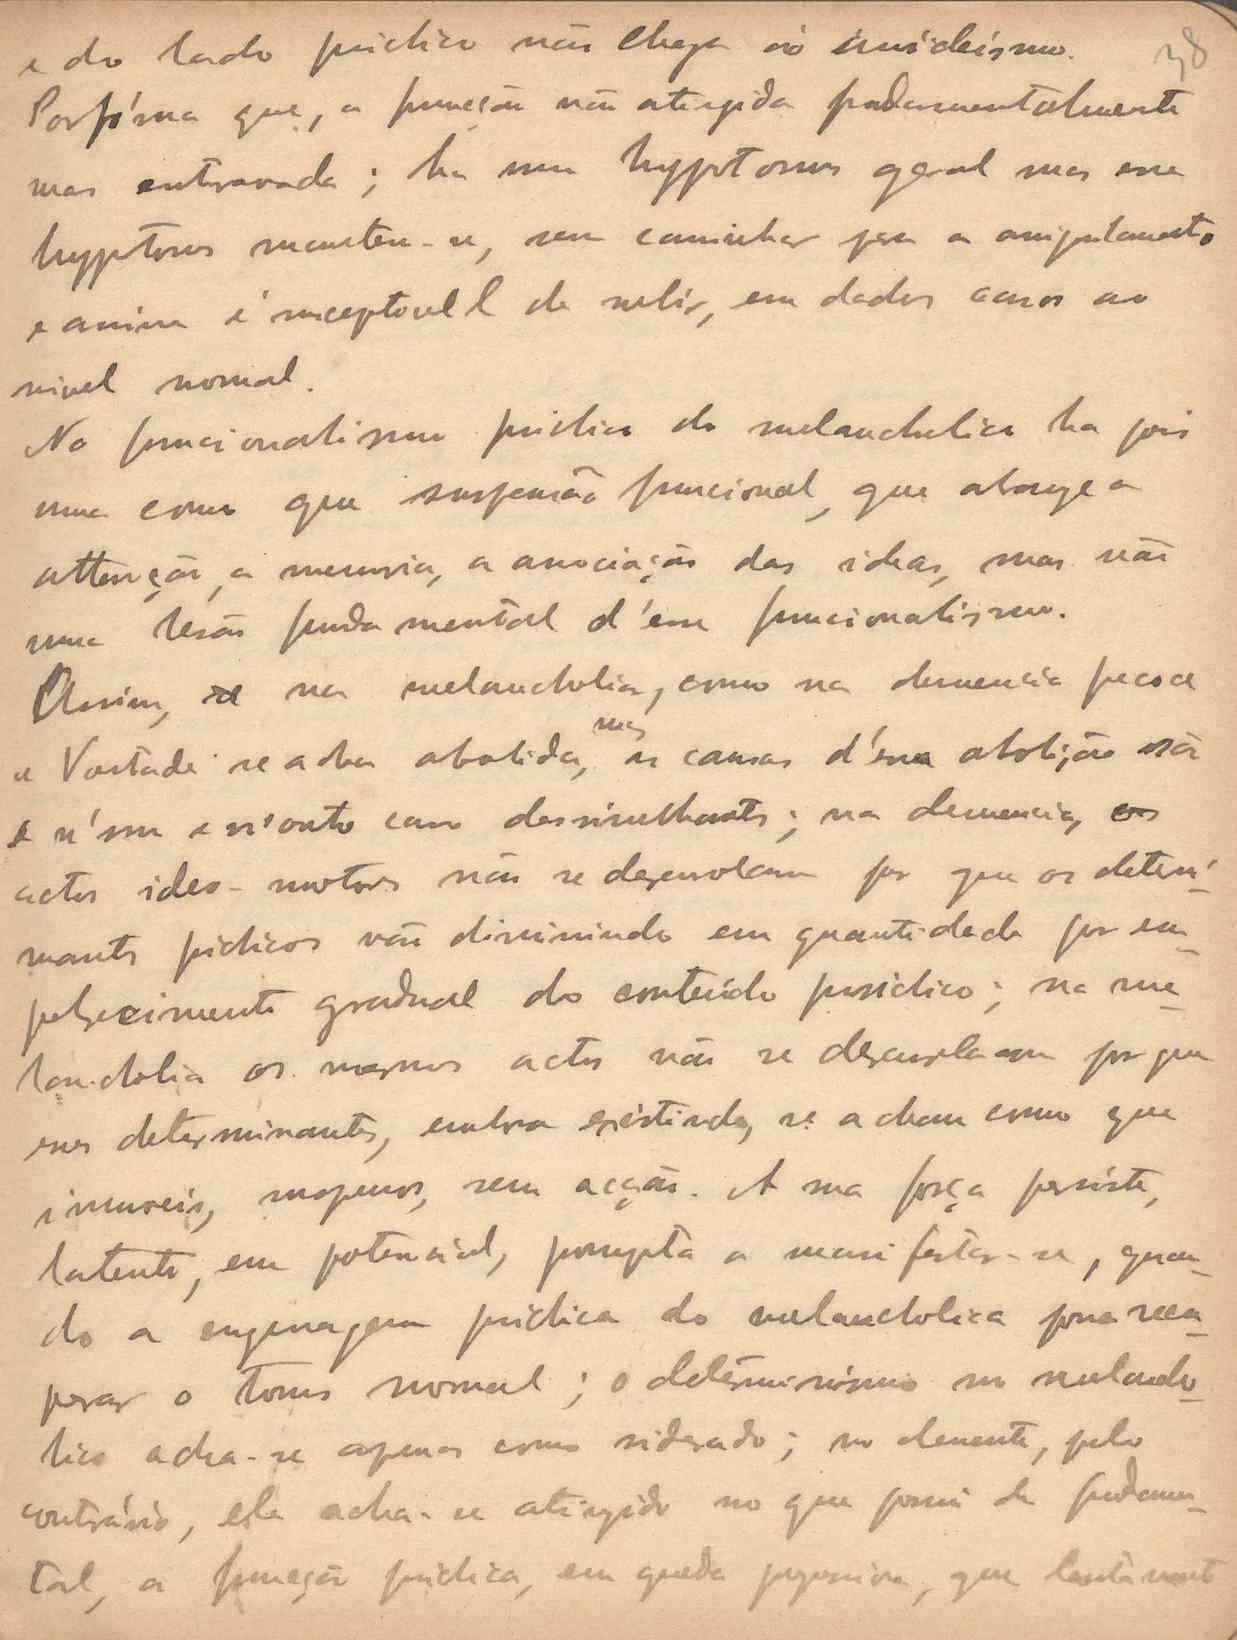 38
e do lado psichico não chega ao suicidismo.
Por fórma que, a funcção não atingida fundamentalmente
mas entravada; ha um hypotonus geral mas esse
hypotonus mantem-se, sem caminhar para o aniquilamento
e assim é susceptivel de subir, em dados casos ao
nivel normal.
No funcionalismo psichico do melancholico ha pois
uma como que suspensão funcional, que abrange a
attenção, a memoria, a associação das ideas, mas não
uma lesão fundamental d'esse funcionalismo.
Assim, se na melancholia, como na demencia precoce
a Vontade se acha abolida, mas as causas d'essa abolição são
n'um e n'outro caso dessimelhantes; na demencia, os
actos ideo-motores não se desenrolam por que os determi-
nantes psichicos vão diminuindo em quantidade por em-
pobrecimento gradual do conteúdo psichico; na me-
lancholia os mesmos actos não se desenrolam por que
esses determinantes, embora existindo, se acham como que
immoveis, suspensos, sem acção. A sua força persiste,
latente, em potencial, prompta a manifestar-se, quan-
do a engrenagem psichica do melancholico possa recu-
perar o tonus normal; o determinismo no melancho-
lico acha-se apenas como siderado; no demente, pelo
contrário, ele acha-se atingido no que possui de fundamen-
tal, a funcção psichica, em queda progressiva, que lentamente